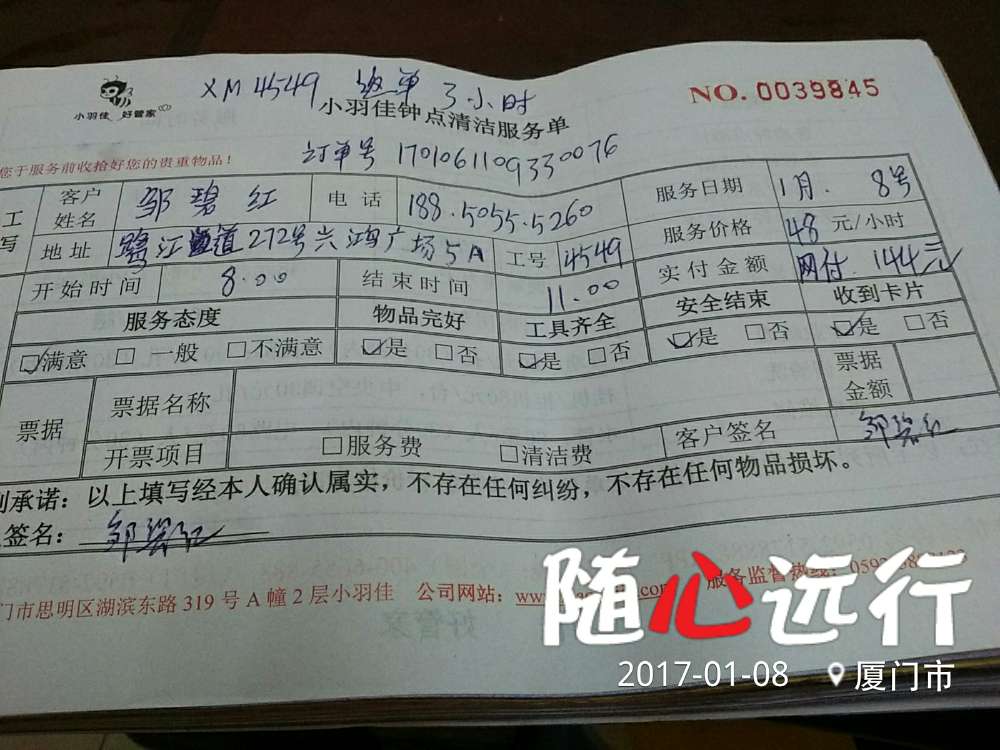 XM4549 返单 3小时
NO. 0039845
小羽佳 好管家
小羽佳钟点清洁服务单
您于服务前收拾好您的贵重物品！
订单号 1701061109330076
工 客户姓名 邹碧红 电话 188.5055.5260 服务日期 1月.8号
写 地址 鹭江道272号兴鸿广场5A 工号 4549 服务价格 48元/小时
开始时间 8.00 结束时间 11.00 实付金额 网付.144元
服务态度 物品完好 工具齐全 安全结束 收到卡片
☑满意 □一般 □不满意 ☑是 □否 ☑是 □否 ☑是 □否 ☑是 □否
票据 票据名称 票据金额
开票项目 □服务费 □清洁费 客户签名 邹碧红
承诺：以上填写经本人确认属实，不存在任何纠纷，不存在任何物品损坏。
签名：邹碧红
门市思明区湖滨东路 319 号 A 幢 2 层小羽佳 公司网站：www. 服务监督热线：0592
随心远行
2017-01-08 厦门市